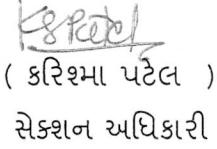 ( કરિશ્મા પટેલ )
સેક્શન અધિકારી